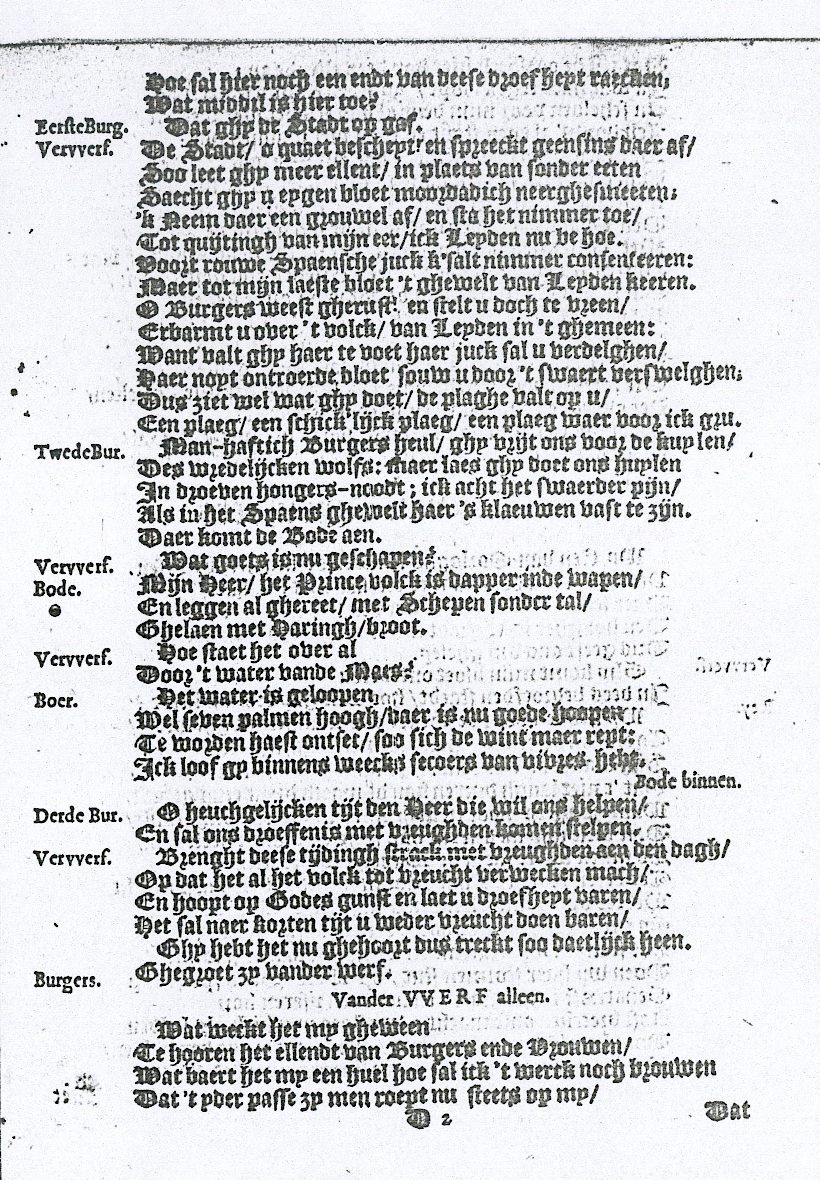 Hoe sal hier noch een endt van deese droefheyt raecken,
Wat middel is hier toe?
EersteBurg. Dat ghy de Stadt op gaf.
Vervverf. De Stadt/ o quaet bescheyt! en spreeckt geensins daer af/
Soo leet ghy meer ellent/ in plaets van sonder eeten
Saecht ghy u eygen bloet moordadich neerghesmeeten;
'k Neem daer een grouwel af/ en sta het nimmer toe/
Tot quijtingh van mijn eer/ick Leyden nu behoe.
Voort rouwe Spaensche juck k'salt nimmer consenteeren:
Maer tot mijn laeste bloet 't ghewelt van Leyden keeren.
O Burgers weest gherust! en stelt u doch te vreen/
Erbarmt u over 't volck/ van Leyden in 't ghemeen:
Want valt ghy haer te voet haer juck sal u verdelghen/
Haer noyt ontroerde bloet souw u door 't swaert verswelghen;
Dus ziet wel wat ghy doet/ de plaghe valt op u/
Een plaeg/ een schick'lijck plaeg/ een plaeg waer voor ick gru.
TwedeBur. Man-haftich Burgers heul/ ghy vrijt ons voor de kuylen/
Des wredelijcken wolfs: maer laes ghy doet ons huylen
In droeven hongers-noodt; ick acht het swaerder pijn/
Als in het Spaens ghewelt haer 's klaeuwen vast te zijn.
Daer komt de Bode aen.
Vervverf. Wat goets is nu geschapen?
Bode. Mijn Heer/ het Prince volck is dapper inde wapen/
En leggen al ghereet/ met Schepen sonder tal/
Ghelaen met Haringh/broot.
Vervverf. Hoe staet het over al
Door 't water vande Maes?
Boer. Het water is geloopen
Wel seven palmen hoogh/daer is nu goede hoopen
Te worden haest ontset/ soo sich de wint maer rept:
Ick loof gy binnens weecks secoers van vivres hebt.
Bode binnen.
Derde Bur. O heuchgelijcken tijt den Heer die wil ons helpen/
En sal ons droeffenis met vreughden komen stelpen.
Vervverf. Brenght deese tijdingh strack met vreughden aen den dagh/
Op dat het al het volck tot vreucht verwecken mach/
En hoopt op Godes gunst en laet u droefheyt varen/
Het sal naer korten tijt u weder vreucht doen baren/
Ghy hebt het nu ghehoort dus treckt soo daetlijck heen.
Burgers. Ghegroet zy vander Werf.
Vander VVERF alleen.
Wat weckt het my gheween
Te hooren het ellendt van Burgers ende Vrouwen/
Wat baert het my een huel hoe sal ick 't werck noch brouwen
Dat 't yder passe zy men roept nu steets op my/
D 2 Dat